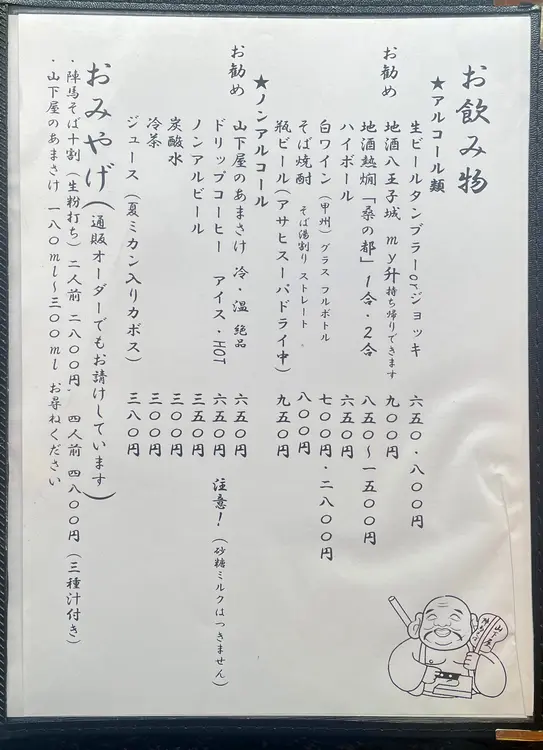 お飲み物
★アルコール類
生ビールタンブラーorジョッキ 六五〇・八〇〇円
お勧め 地酒八王子城 my升持ち帰りできます 九〇〇円
地酒熱燗「桑の都」1合・2合 八五〇～一五〇〇円
ハイボール 六五〇円
白ワイン（甲州）グラス フルボトル 七〇〇円・二八〇〇円
そば焼酎 そば湯割り ストレート 八〇〇円
瓶ビール（アサヒスーパドライ中） 九五〇円
★ノンアルコール
お勧め 山下屋のあまさけ 冷・温 絶品 六五〇円
ドリップコーヒー アイス・HOT 六五〇円 注意！（砂糖ミルクはつきません）
ノンアルビール 三五〇円
炭酸水 三〇〇円
冷茶 三〇〇円
ジュース（夏ミカン入りカボス） 三八〇円
おみやげ（通販オーダーでもお請けしています）
・陣馬そば十割（生粉打ち）二人前 二八〇〇円、四人前 四八〇〇円（三種汁付き）
・山下屋のあまさけ 一八〇ml～三〇〇ml お尋ねください
山下屋